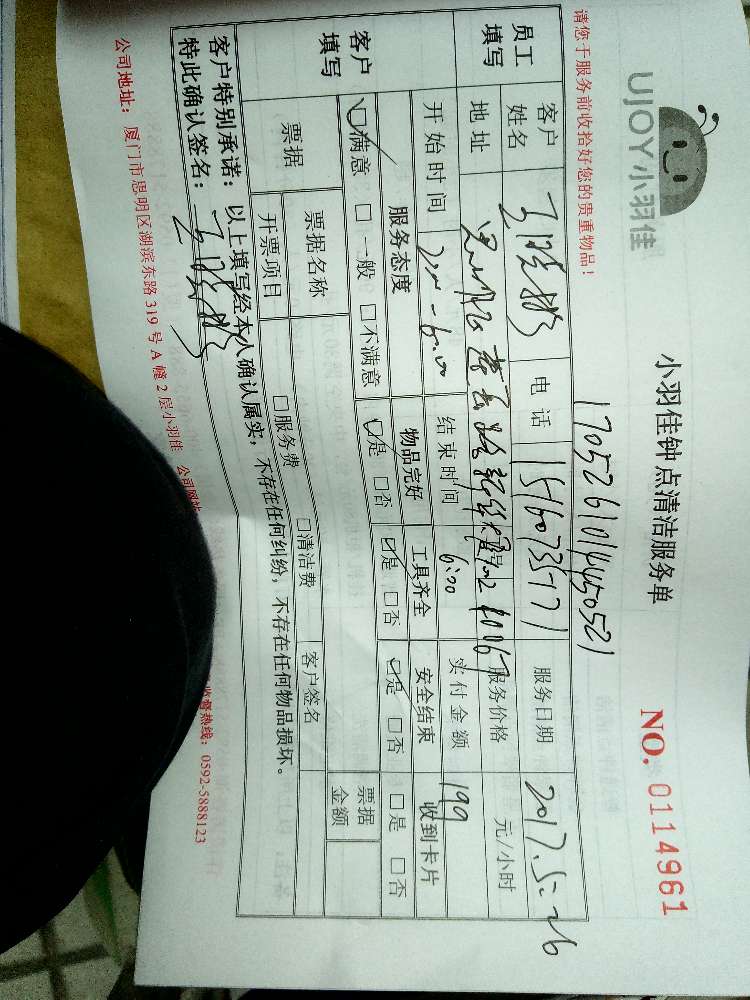 UJOY小羽佳
小羽佳钟点清洁服务单
NO. 0114961
请您于服务前收拾好您的贵重物品！
17052610144450521
员工填写 客户姓名 电话 15160735171 服务日期 2017.5.26
地址 服务价格 元/小时
开始时间 结束时间 6:00 实付金额 199
客户填写 服务态度 物品完好 工具齐全 安全结束 收到卡片
☑满意 □一般 □不满意 ☑是 □否 ☑是 □否 ☑是 □否 □是 □否
票据 票据名称 客户签名 票据金额
开票项目 □服务费 □清洁费
客户特别承诺：以上填写经本人确认属实，不存在任何纠纷，不存在任何物品损坏。
特此确认签名：
公司地址：厦门市思明区湖滨东路319号A幢2层小羽佳 公司网站
监督热线：0592-5888123